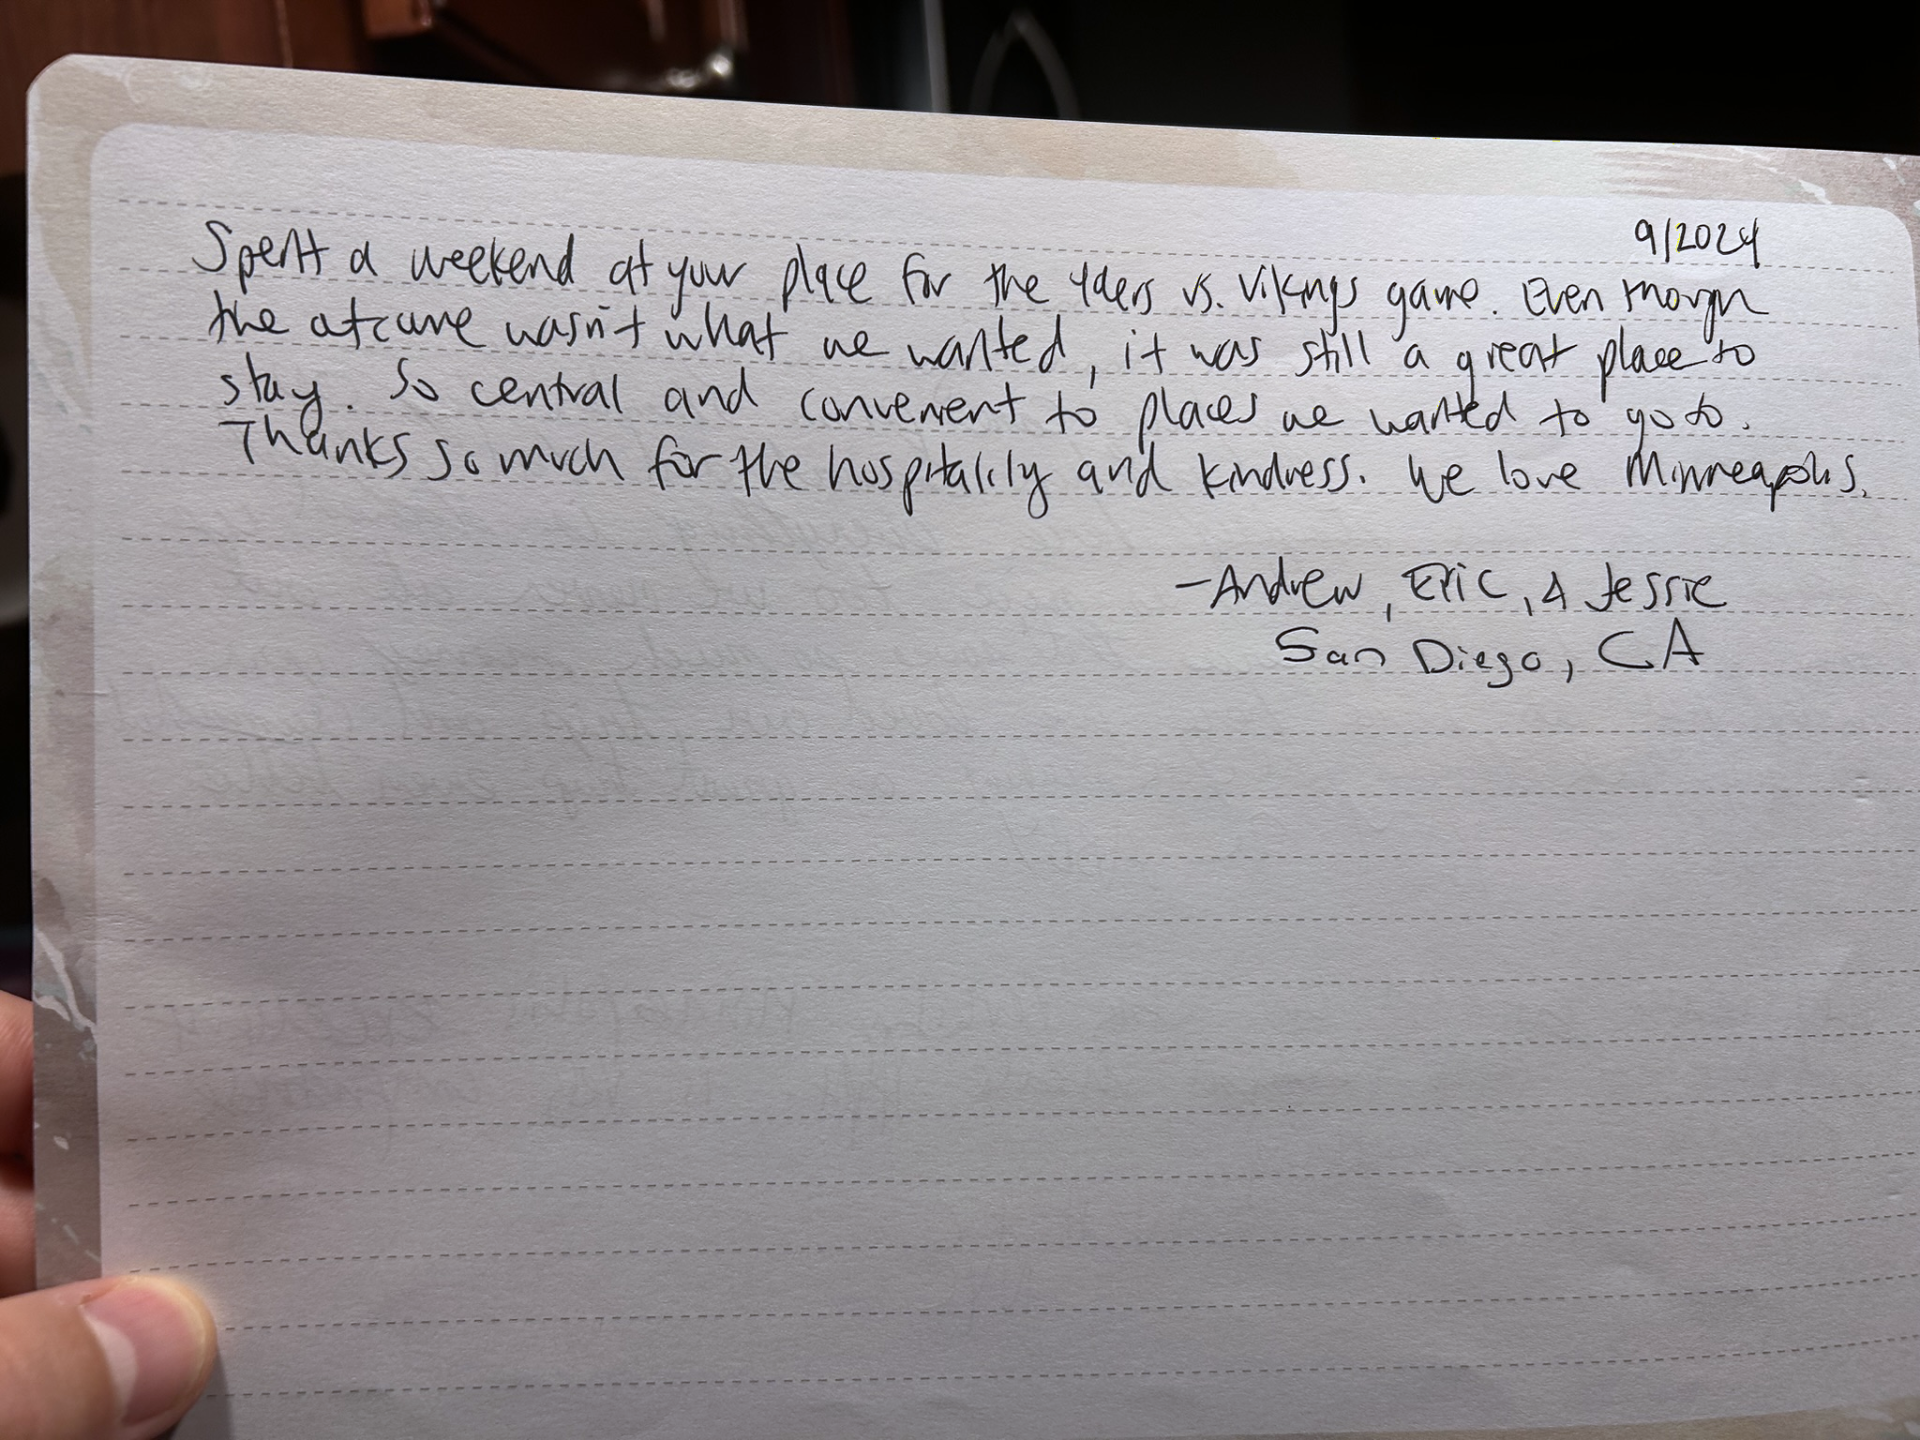 9/2024
Spent a weekend at your place for the 49ers vs. Vikings game. Even though
the outcome wasn't what we wanted, it was still a great place to
stay. So central and convenient to places we wanted to go to.
Thanks so much for the hospitality and kindness. We love Minneapolis.
-Andrew, Eric, & Jessie
San Diego, CA